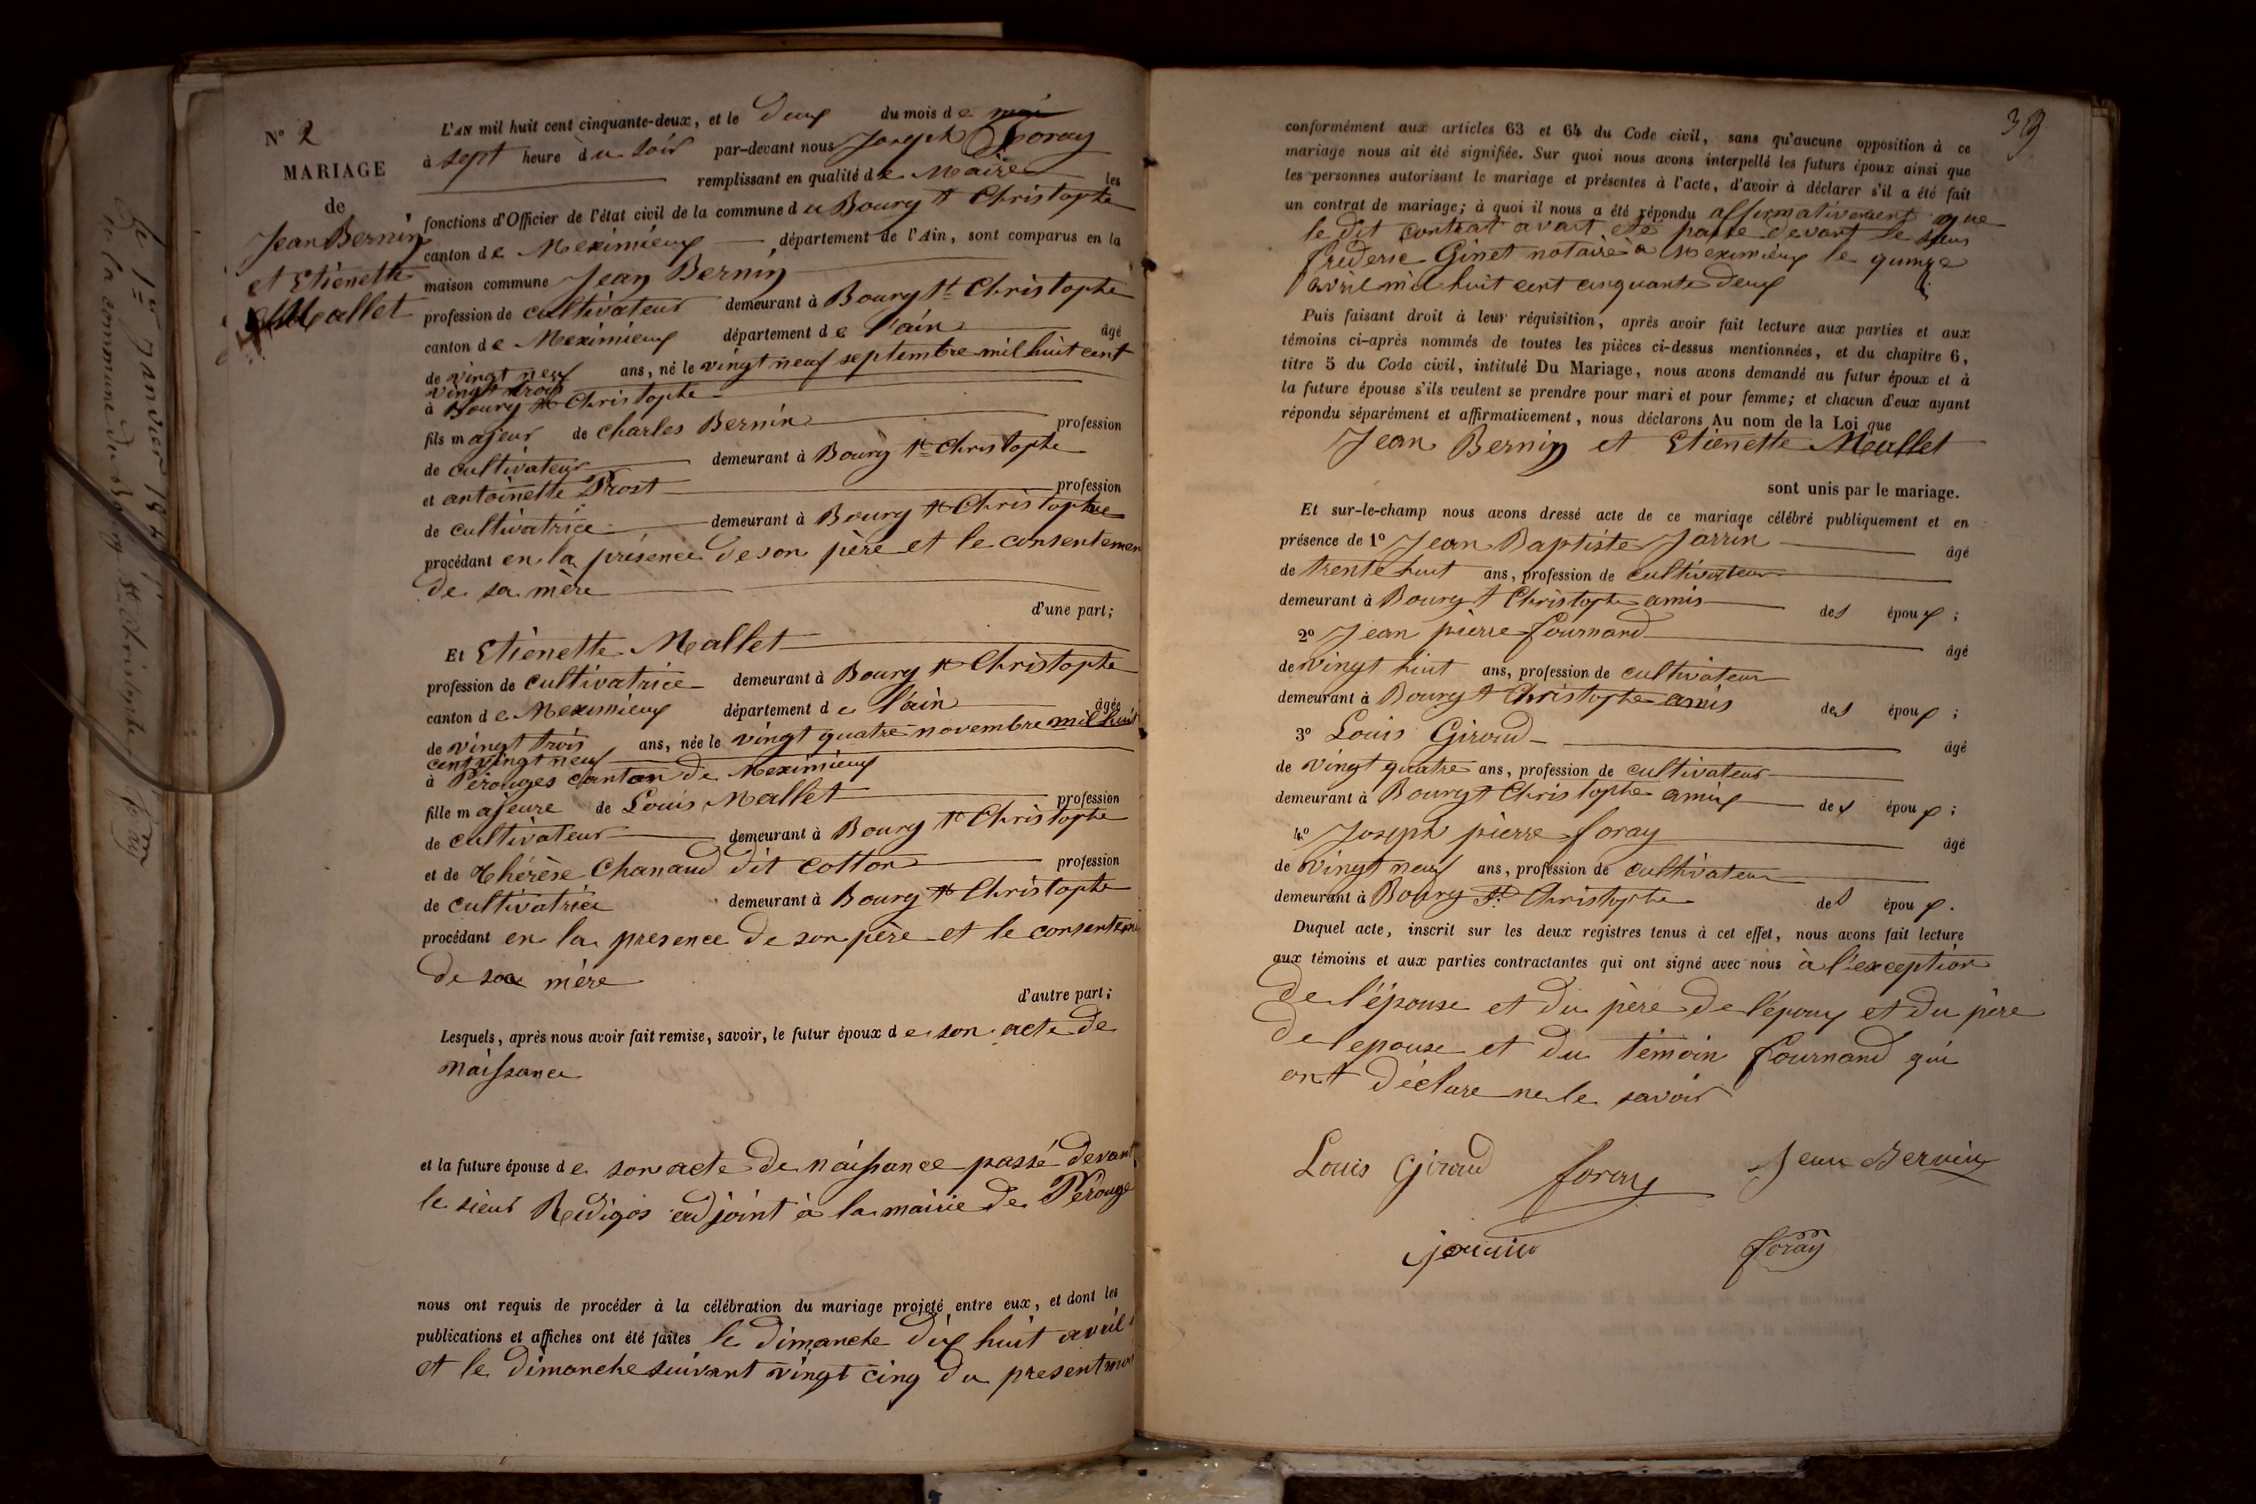 N° 2
MARIAGE
de
Jean Bernin
et Etienette
Mallet
L'AN mil huit cent cinquante-deux, et le deux du mois de mai
à sept heure du soir par-devant nous Joseph Foray
remplissant en qualité de Maire les
fonctions d'Officier de l'état civil de la commune du Bourg St Christophe
canton de Meximieux département de l'Ain, sont comparus en la
maison commune Jean Bernin
profession de cultivateur demeurant à Bourg St Christophe
canton de Meximieux département de l'ain âgé
de vingt neuf ans, né le vingt neuf septembre mil huit cent
vingt trois
à Bourg St Christophe
fils majeur de Charles Bernin profession
de cultivateur demeurant à Bourg St Christophe
et antoinette Prost profession
de cultivatrice demeurant à Bourg St Christophe
procédant en la présence de son père et le consentemen
de sa mère
d'une part;
Et Etienette Mallet
profession de cultivatrice demeurant à Bourg St Christophe
canton de Meximieux département de l'ain âgée
de vingt trois ans, née le vingt quatre novembre mil huit
cent vingt neuf
à Pérouges canton de Meximieux
fille majeure de Louis Mallet profession
de cultivateur demeurant à Bourg St Christophe
et de Thérèse Chanaud dit cotton profession
de cultivatrice demeurant à Bourg St Christophe
procédant en la presence de son père et le consentem
de sa mère
d'autre part;
Lesquels, après nous avoir fait remise, savoir, le futur époux de son acte de
naissance
et la future épouse de son acte de naissance passé devant
le sieur adjoint à la mairie de Pérouge
nous ont requis de procéder à la célébration du mariage projeté entre eux, et dont les
publications et affiches ont été faites le dimanche dix huit avril
et le dimanche suivant vingt cinq du present mois
Le 1er janvier
de la commune du Bourg St Christophe Foray
39
conformément aux articles 63 et 64 du Code civil, sans qu'aucune opposition à ce
mariage nous ait été signifiée. Sur quoi nous avons interpellé les futurs époux ainsi que
les personnes autorisant le mariage et présentes à l'acte, d'avoir à déclarer s'il a été fait
un contrat de mariage; à quoi il nous a été répondu affirmativement que
le dit contrat avait été passé devant le sieur
frederic Ginet notaire à Meximieux le quinze
avril mil huit cent cinquante deux
Puis faisant droit à leur réquisition, après avoir fait lecture aux parties et aux
témoins ci-après nommés de toutes les pièces ci-dessus mentionnées, et du chapitre 6,
titre 5 du Code civil, intitulé Du Mariage, nous avons demandé au futur époux et à
la future épouse s'ils veulent se prendre pour mari et pour femme; et chacun d'eux ayant
répondu séparément et affirmativement, nous déclarons Au nom de la Loi que
Jean Bernin et Etienette Mallet
sont unis par le mariage.
Et sur-le-champ nous avons dressé acte de ce mariage célébré publiquement et en
présence de 1° Jean Baptiste Jarrin âgé
de trente huit ans, profession de cultivateur
demeurant à Bourg St Christophe amis des époux;
2° Jean pierre fournand âgé
de vingt huit ans, profession de cultivateur
demeurant à Bourg St Christophe amis des époux;
3° Louis Giroud âgé
de vingt quatre ans, profession de cultivateur
demeurant à Bourg St Christophe amis des époux;
4° Joseph pierre foray âgé
de vingt neuf ans, profession de cultivateur
demeurant à Bourg St Christophe des époux.
Duquel acte, inscrit sur les deux registres tenus à cet effet, nous avons fait lecture
aux témoins et aux parties contractantes qui ont signé avec nous à l'exception
de l'épouse et du père de l'époux et du père
de l'epouse et du témoin fournand qui
ont déclare ne le savoir
Louis Giroud foray Jean Bernin
foray